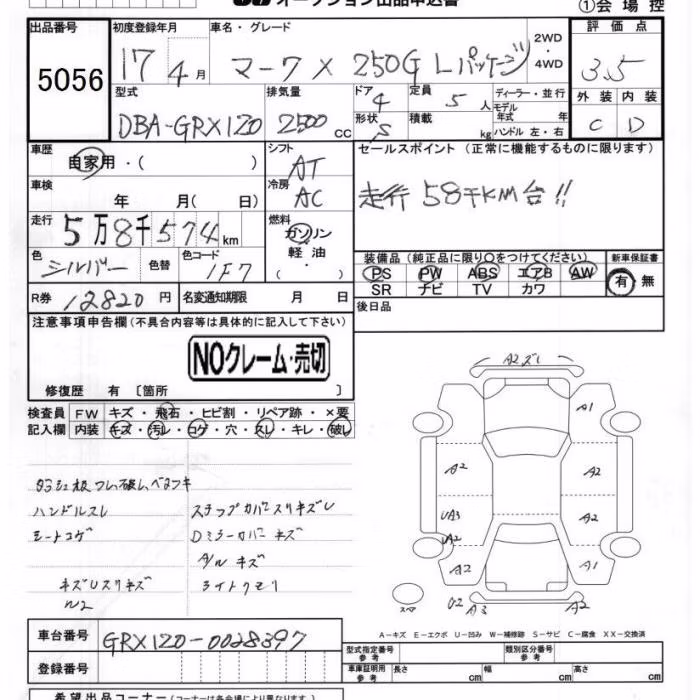 オークション出品申込書
①会場控
出品番号 初度登録年月 車名・グレード 2WD・4WD 評価点
5056 17 4月 マークX 250G Lパッケージ 3.5
型式 排気量 ドア 定員 ディーラー・並行 外装 内装
DBA-GRX120 2500cc 4 5人 モデル年式 年 C D
形状 S 積載 kg ハンドル 左・右
車歴 自家用・( ) シフト AT セールスポイント (正常に機能するものに限ります)
車検 年 月( 日) 冷房 AC 走行58千KM台!!
走行 5万8千574km 燃料 ガソリン 軽油・( )
装備品 (純正品に限り○をつけてください) 新車保証書
色 シルバー 色替 色コード 1F7 PS PW ABS エアB AW 有 無
SR ナビ TV カワ
R券 12820円 名変通知期限 月 日 後日品
注意事項申告欄 (不具合内容等は具体的に記入して下さい)
NOクレーム・売切
修復歴 有 [箇所 ]
検査員 FW キズ・飛石・ヒビ割・リペア跡・×要
記入欄 内装 キズ・汚レ・コゲ・穴・スレ・キレ・破レ
A2 ズレ
A1
A2 A2
UA3 A2
UA2
A2 A1
スペア U2 A3 A2
ハンドルスレ ステップカバースリキズU
シートコゲ Dミラーカバーキズ
A/W キズ
キズUスリキズ ライトクモリ
W2
A-キズ E-エクボ U-凹み W-補修跡 S-サビ C-腐食 XX-交換済
車台番号 GRX120-0028397
型式指定番号 参考 類別区分番号 参考
登録番号 車庫証明用 参考 長さ cm 幅 cm 高さ cm
希望出品コーナー (コーナーは各会場により異なります。)